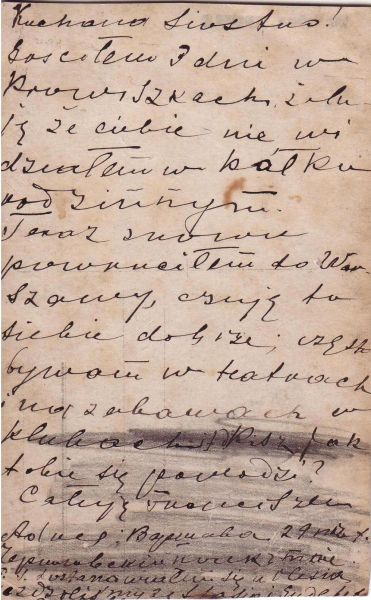 Kuchana Siostro!
Gościłem 3 dni w
Prowiszkach, żału-
ję że ciebie nie wi
działem w kółku
rodzinnym.
Teraz znowu
powruciłem do War-
szawy, czuję tu
siebie dobrze; częst
bywam w teatrach
i na zabawach w
klubach. Pisz jak
tobie się powodzi?
Całuję Franciszek
Адрес: Варшава 29